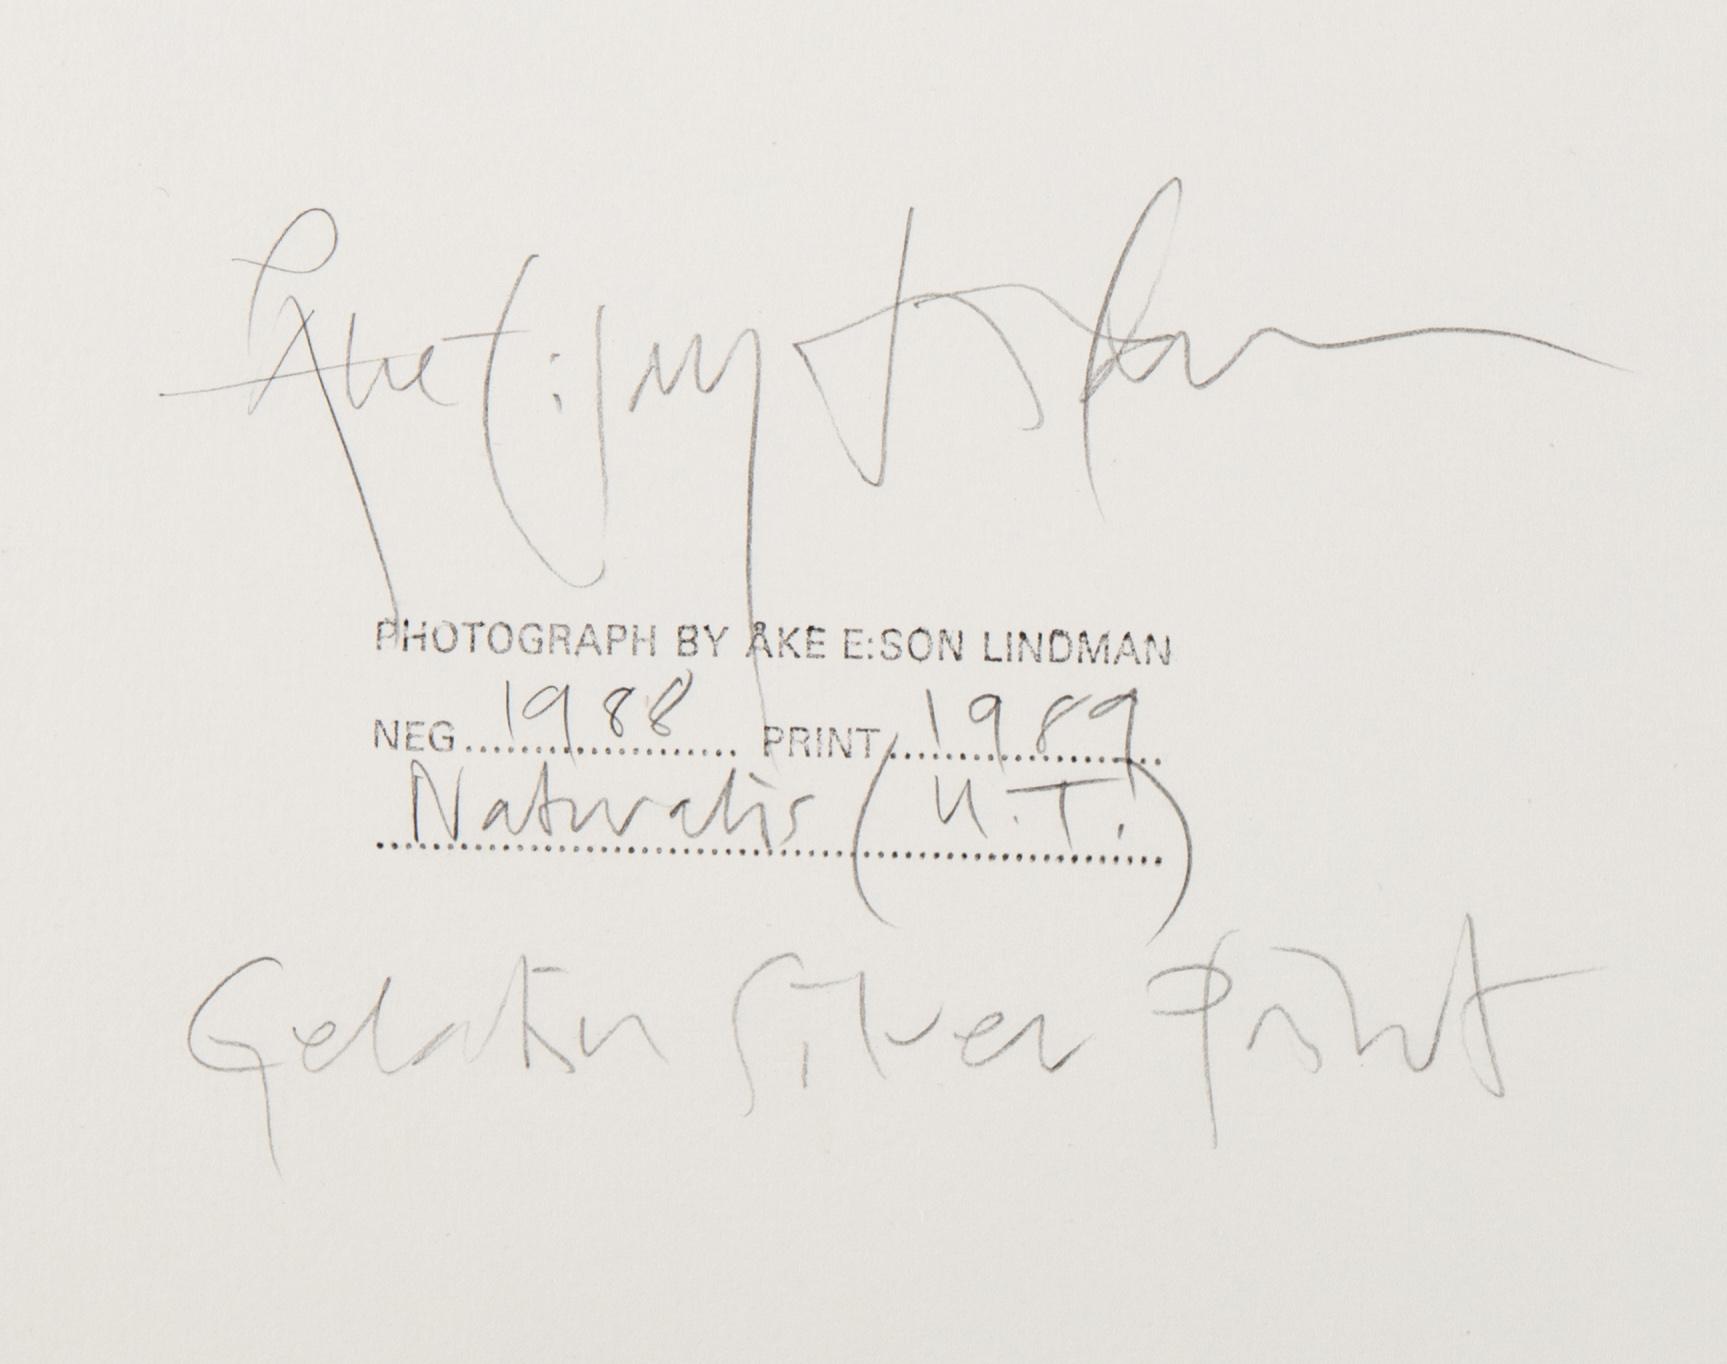 Åke E:son Lindman
PHOTOGRAPH BY ÅKE E:SON LINDMAN
NEG. 1988 PRINT 1989
Naturalis (U.T.)
Gelatin Silver Print